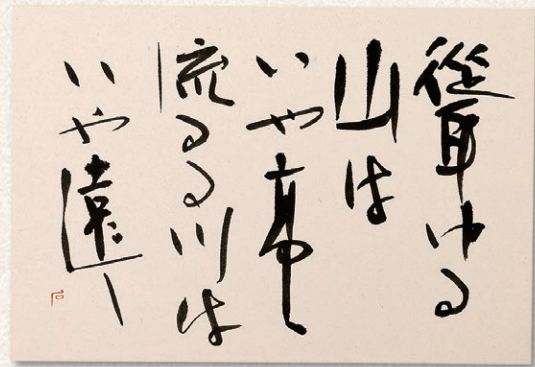 聳ゆる
山は
いや高し
流るる川は
いや遠し